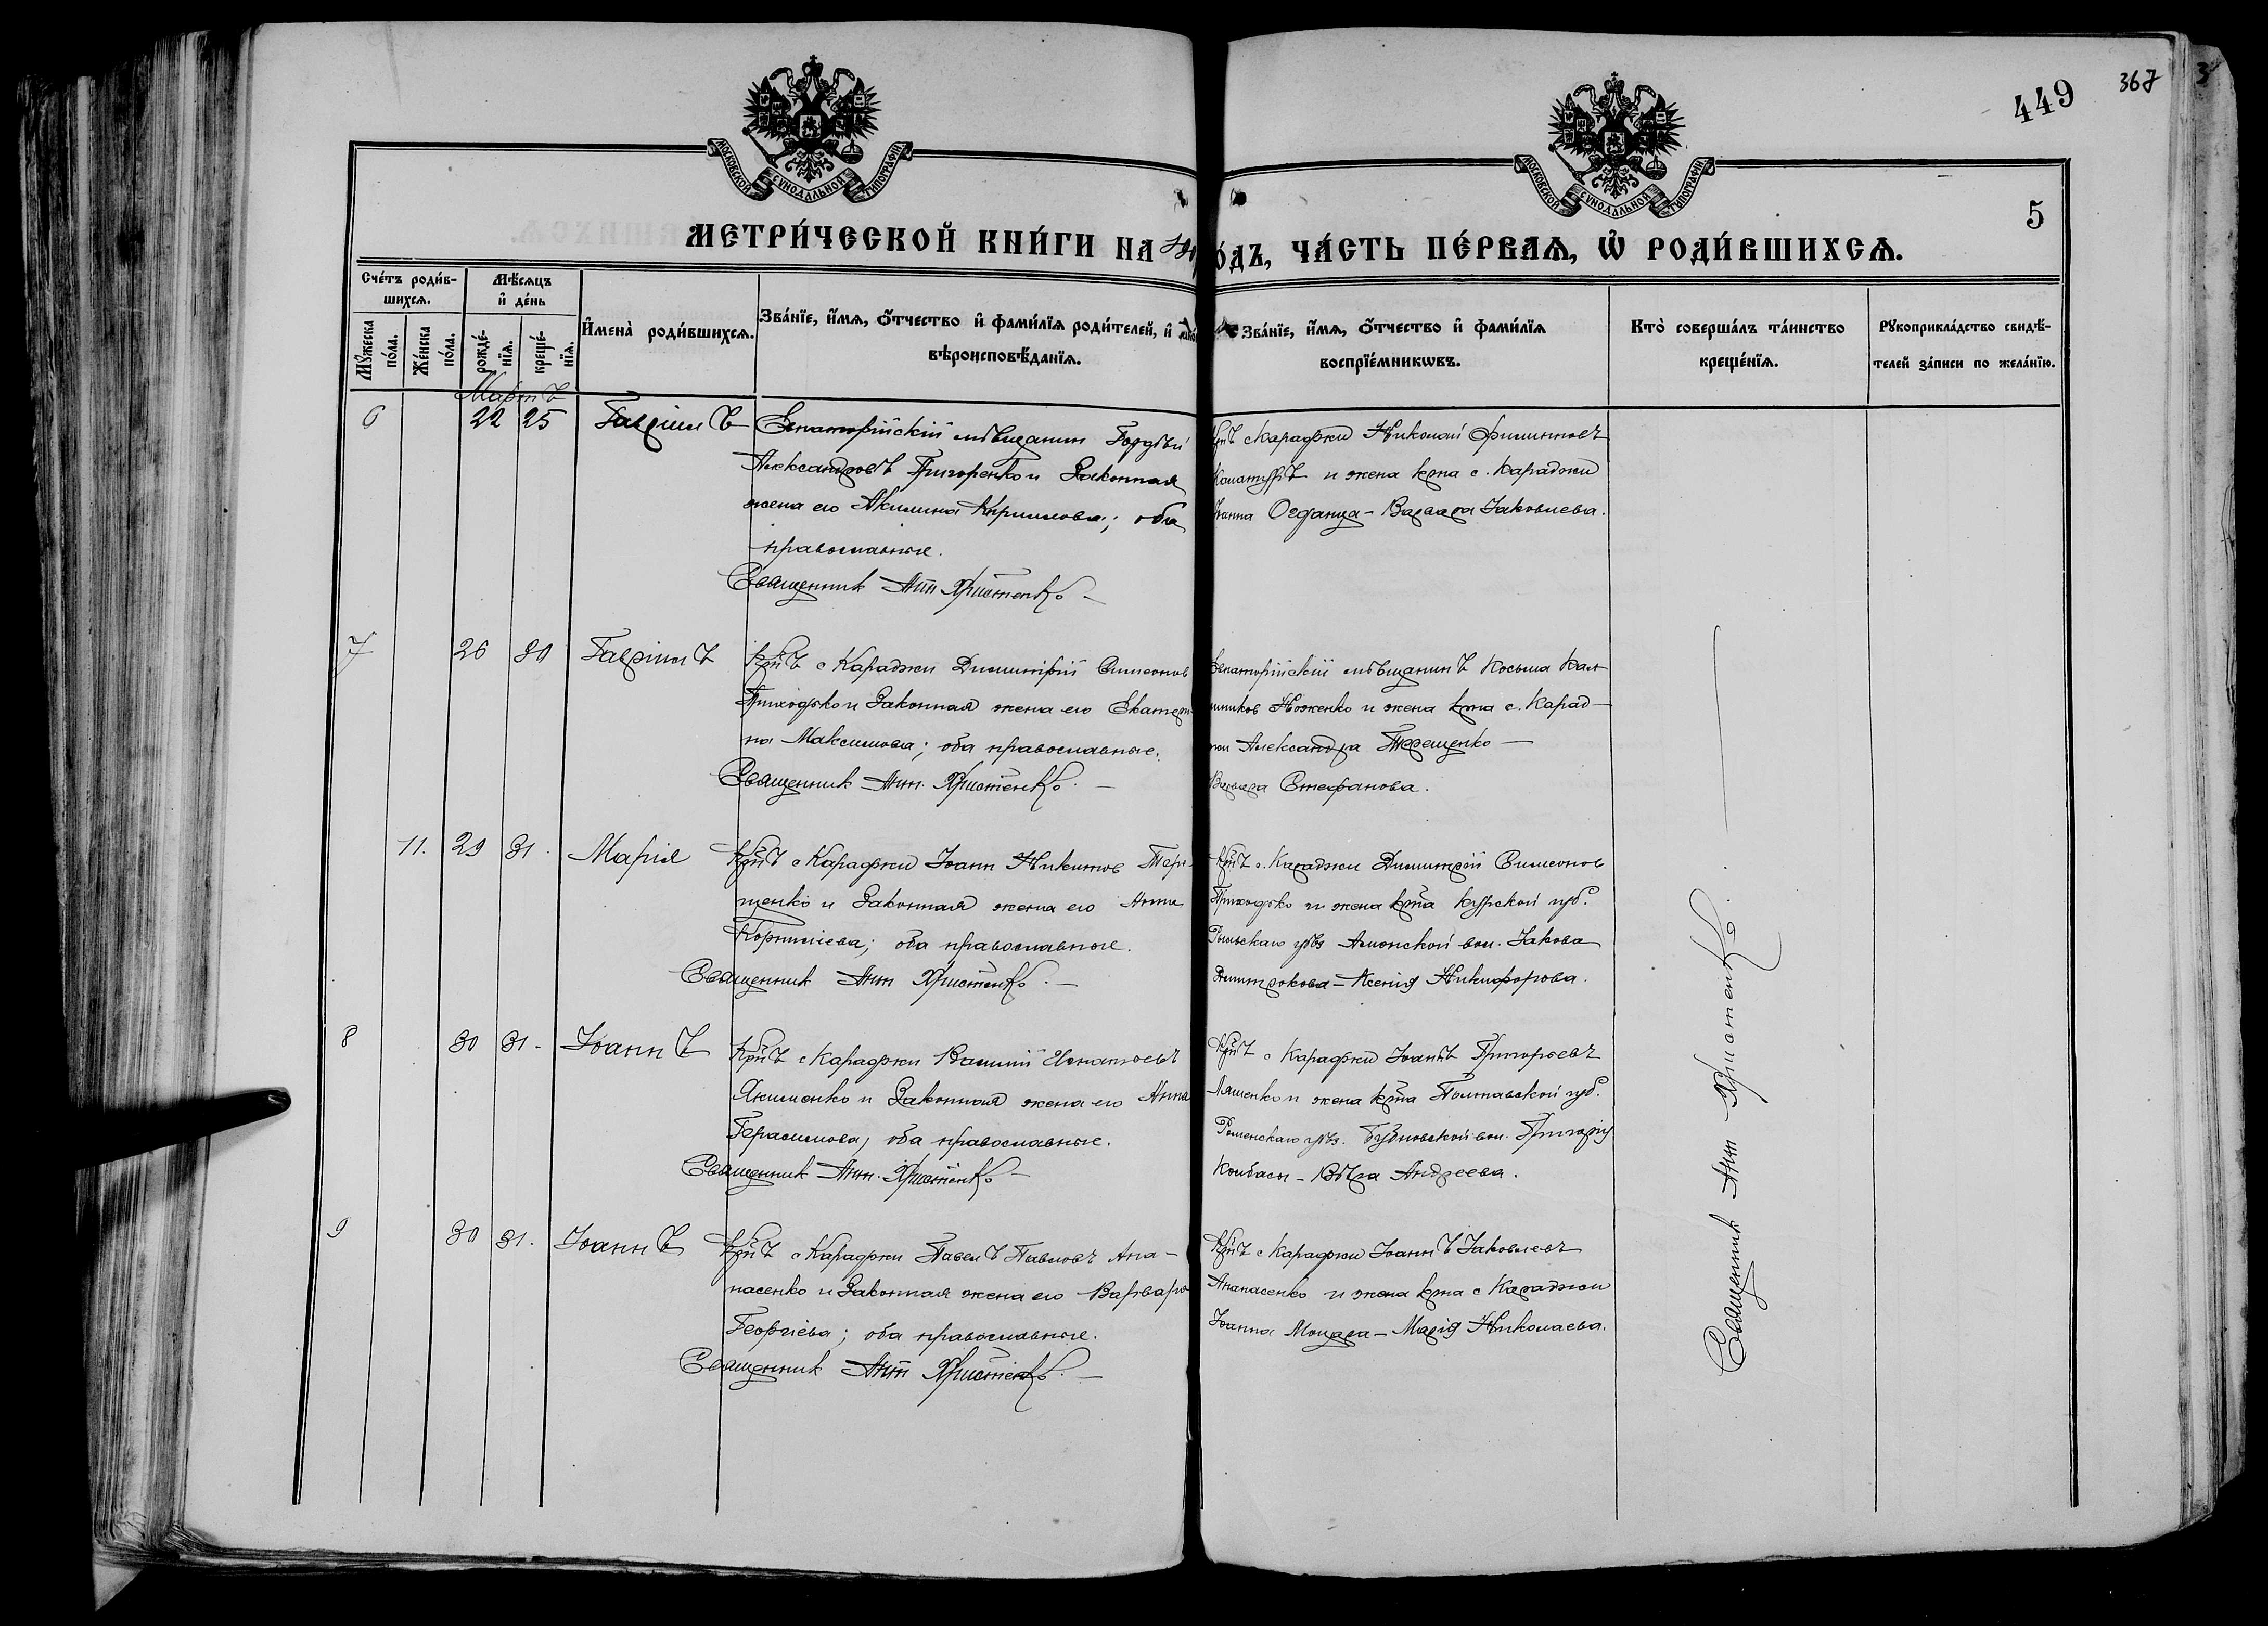 449
367
3
МОСКОВСКОЙ СѴНОДАЛЬНОЙ ТИПОГРАФІИ
МОСКОВСКОЙ СѴНОДАЛЬНОЙ ТИПОГРАФІИ
5
МЕТРИ́ЧЕСКОЙ КНИ́ГИ НА
О́ДЪ, ЧА́СТЬ ПЕ́РВАѦ, Ѡ҆ РОДИ́ВШИХСѦ.
Сче́тъ роди́в-
шихсѧ.
Мѣ́сѧцъ
и҆ де́нь
Мꙋ́жеска
по́ла.
Же́нска
по́ла.
рожде́-
нїѧ.
креще́-
нїѧ.
И҆мена̀ роди́вшихсѧ.
Зва́нїе, и҆́мѧ, ѻ҆́тчество и҆ фами́лїѧ роди́телей, и҆
вѣроисповѣ́данїѧ.
Зва́нїе, и҆́мѧ, ѻ҆́тчество и҆ фами́лїѧ
воспрїе́мникѡвъ.
Кто̀ соверша́лъ та́инство
креще́нїѧ.
Рꙋкоприкла́дство свидѣ́-
телей за́писи по жела́нїю.
Мартъ
6 22 25 Гавріилъ Евпаторійскій мѣщанин Гордѣй
Александровъ Григоренко и Законная
жена его Акилина Кириллова; оба
православные.
Священник Ант Христенко
с Караджи Николай Филипповъ
и жена кр̃на с. Караджи
Іоанна Огданца - Варвара Іаковлева.
7 26 30 Гавріилъ Кр̃нъ с Караджи Димитрій Симеонов
Приходько и Законная жена его Екатери-
на Максимова; оба православные.
Священник Ант. Христенко.
Евпаторійскій мѣщанинъ Косьма Кал-
лиников Ноженко и жена кр̃на с. Карад-
жи Александра Терещенко
Варвара Стефанова.
11. 29 31. Марія Кр̃нъ с Караджи Іоанн Никитов Тере-
щенко и Законная жена его Анна
Корнилiева; оба православные.
Священник Ант Христенко.
Кр̃нъ с. Караджи Димитрій Симеонов
Приходько и жена кр̃на Курской губ.
Рыльскаго уѣз. вол. Іакова
- Ксенія Никифорова.
8 30 31. Іоаннъ Кр̃нъ с Караджи Василій Игнатьевъ
Якименко и Законная жена его Анна
Герасимова; оба православные.
Священник Ант. Христенко
Кр̃нъ с Караджи Іоаннъ Григорьевъ
Ляшенко и жена кр̃на Полтавской губ.
Роменскаго уѣз. вол. Григорія
Колбасы - Вѣра Андреева.
9 30 31. Іоаннъ Кр̃нъ с Караджи Павелъ Павловъ Апа-
насенко и Законная жена его Варвара
Георгіева; оба православные.
Священник Ант Христенко.
Кр̃нъ с Караджи Іоаннъ Іаковлевъ
Апанасенко и жена кр̃на с Караджи
Іоанна Моцара - Марія Николаева.
Священник Ант Христенко.